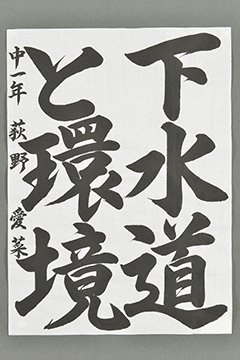 下水道
と環境
中一年 荻野愛菜